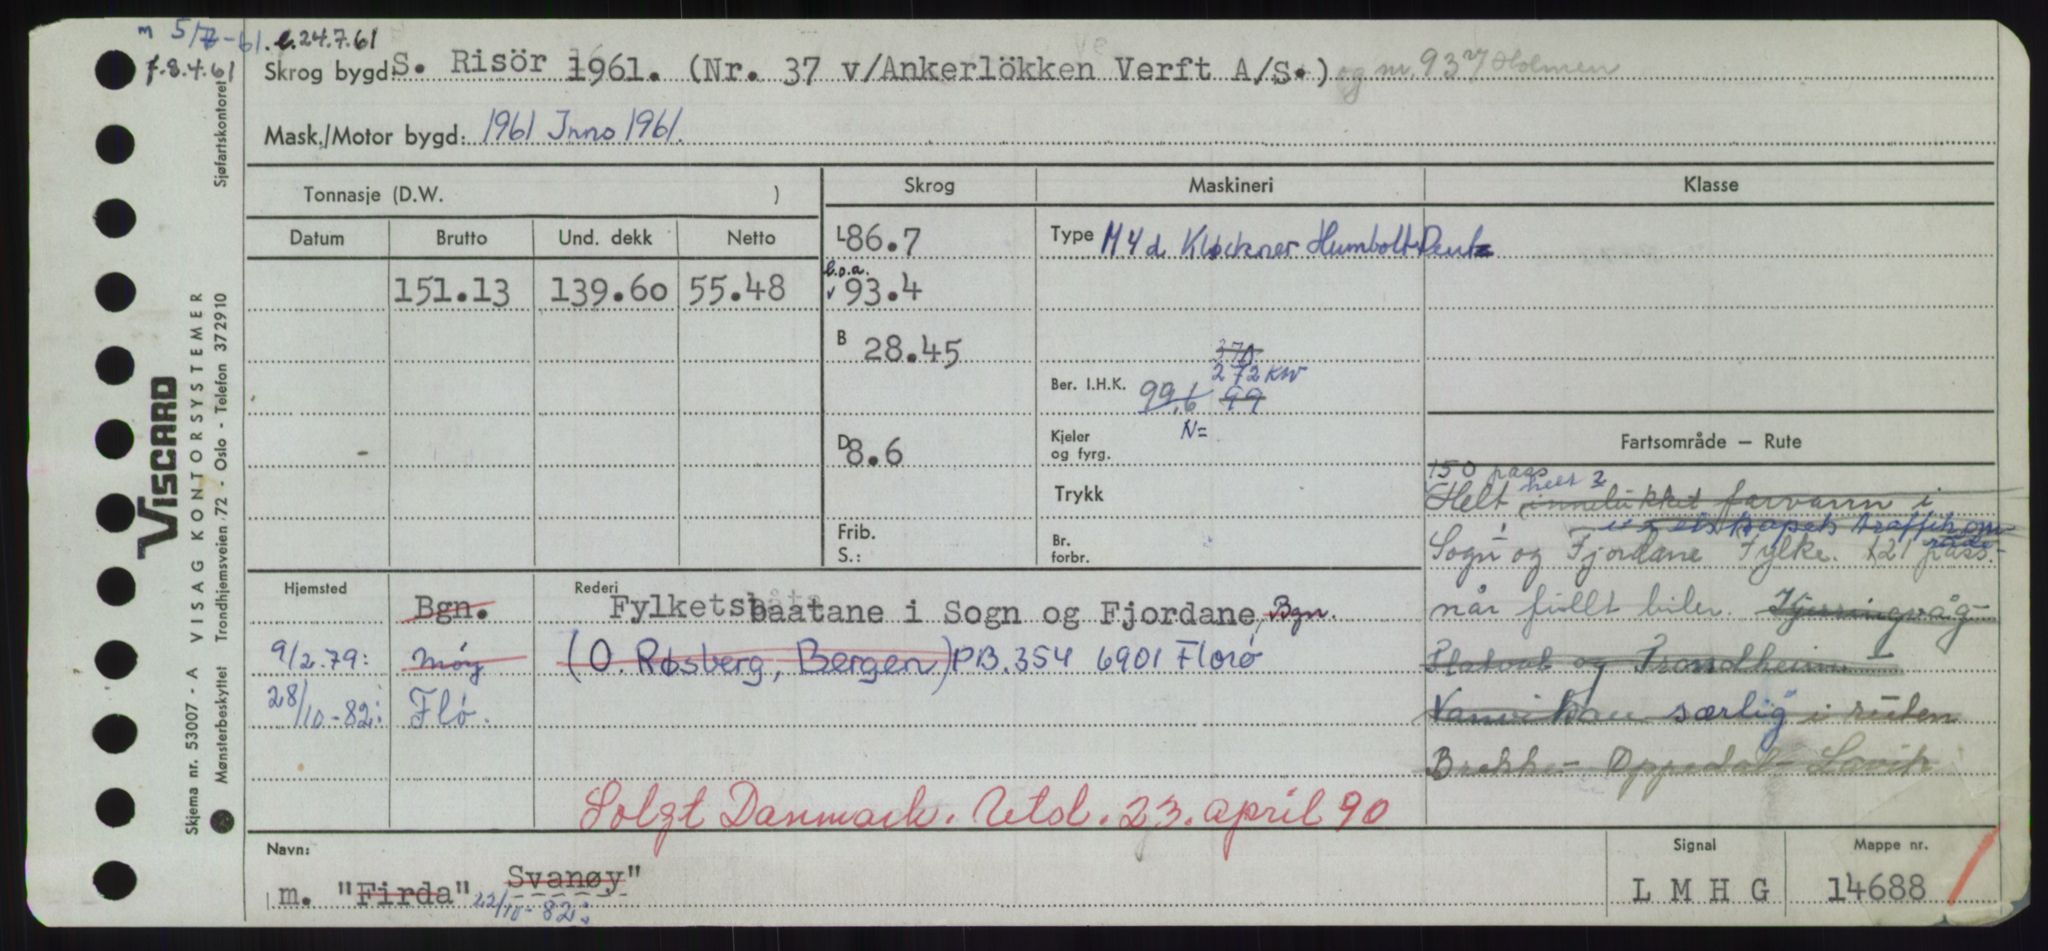 m 5/7-61. l.24.7.61
f.8.4.61
Skrog bygd: S. Risör 1961. (Nr. 37 v/Ankerlökken Verft A/S.) og m. 93 Holmen
Mask./Motor bygd: 1961 Inno 1961.
Tonnasje (D.W. )
Skrog Maskineri Klasse
Datum Brutto Und. dekk Netto
L 86.7
Type M4d Kløckner Humbolt Deutz
151.13 139.60 55.48
l.o.a. 93.4
B 28.45
370
272 KW
Ber. I.H.K. 99.6 99
N=
D 8.6
Kjeler og fyrg.
Trykk
Frib.
S.:
Br. forbr.
Fartsområde — Rute
150 pass
Helt innelukket farvann i
Sogn og Fjordane Fylke. 121 pass.
når fullt biler. Kjerringvåg-
og Trondheim
Vanvikan særlig i ruten
Brekke - Oppedal - Lavik
Hjemsted Rederi
Bgn. Fylketsbaatane i Sogn og Fjordane Bgn.
9/2.79: Møy (O. Røsberg, Bergen) PB.354 6901 Florø
28/10-82: Flø.
Solgt Danmark. Utsl. 23. april 90
Navn:
Signal
Mappe nr.
m. "Firda" Svanøy"
22/10-82:
L M H G
14688
Skjema nr. 53007 - A VISAG KONTORSYSTEMER
VISCARD
Mønsterbeskyttet Trondhjemsveien 72 - Oslo - Telefon 372910
Sjøfartskontoret